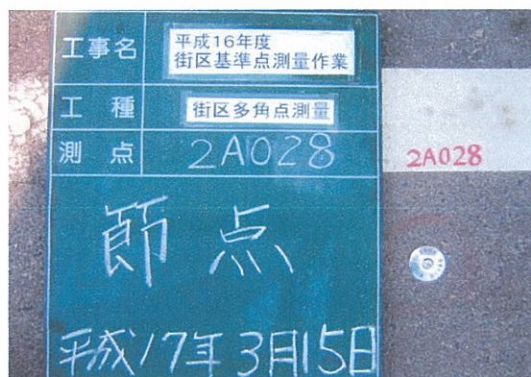 工事名
平成16年度
街区基準点測量作業
工種
街区多角点測量
測点
2A028
2A028
節点
平成17年3月15日